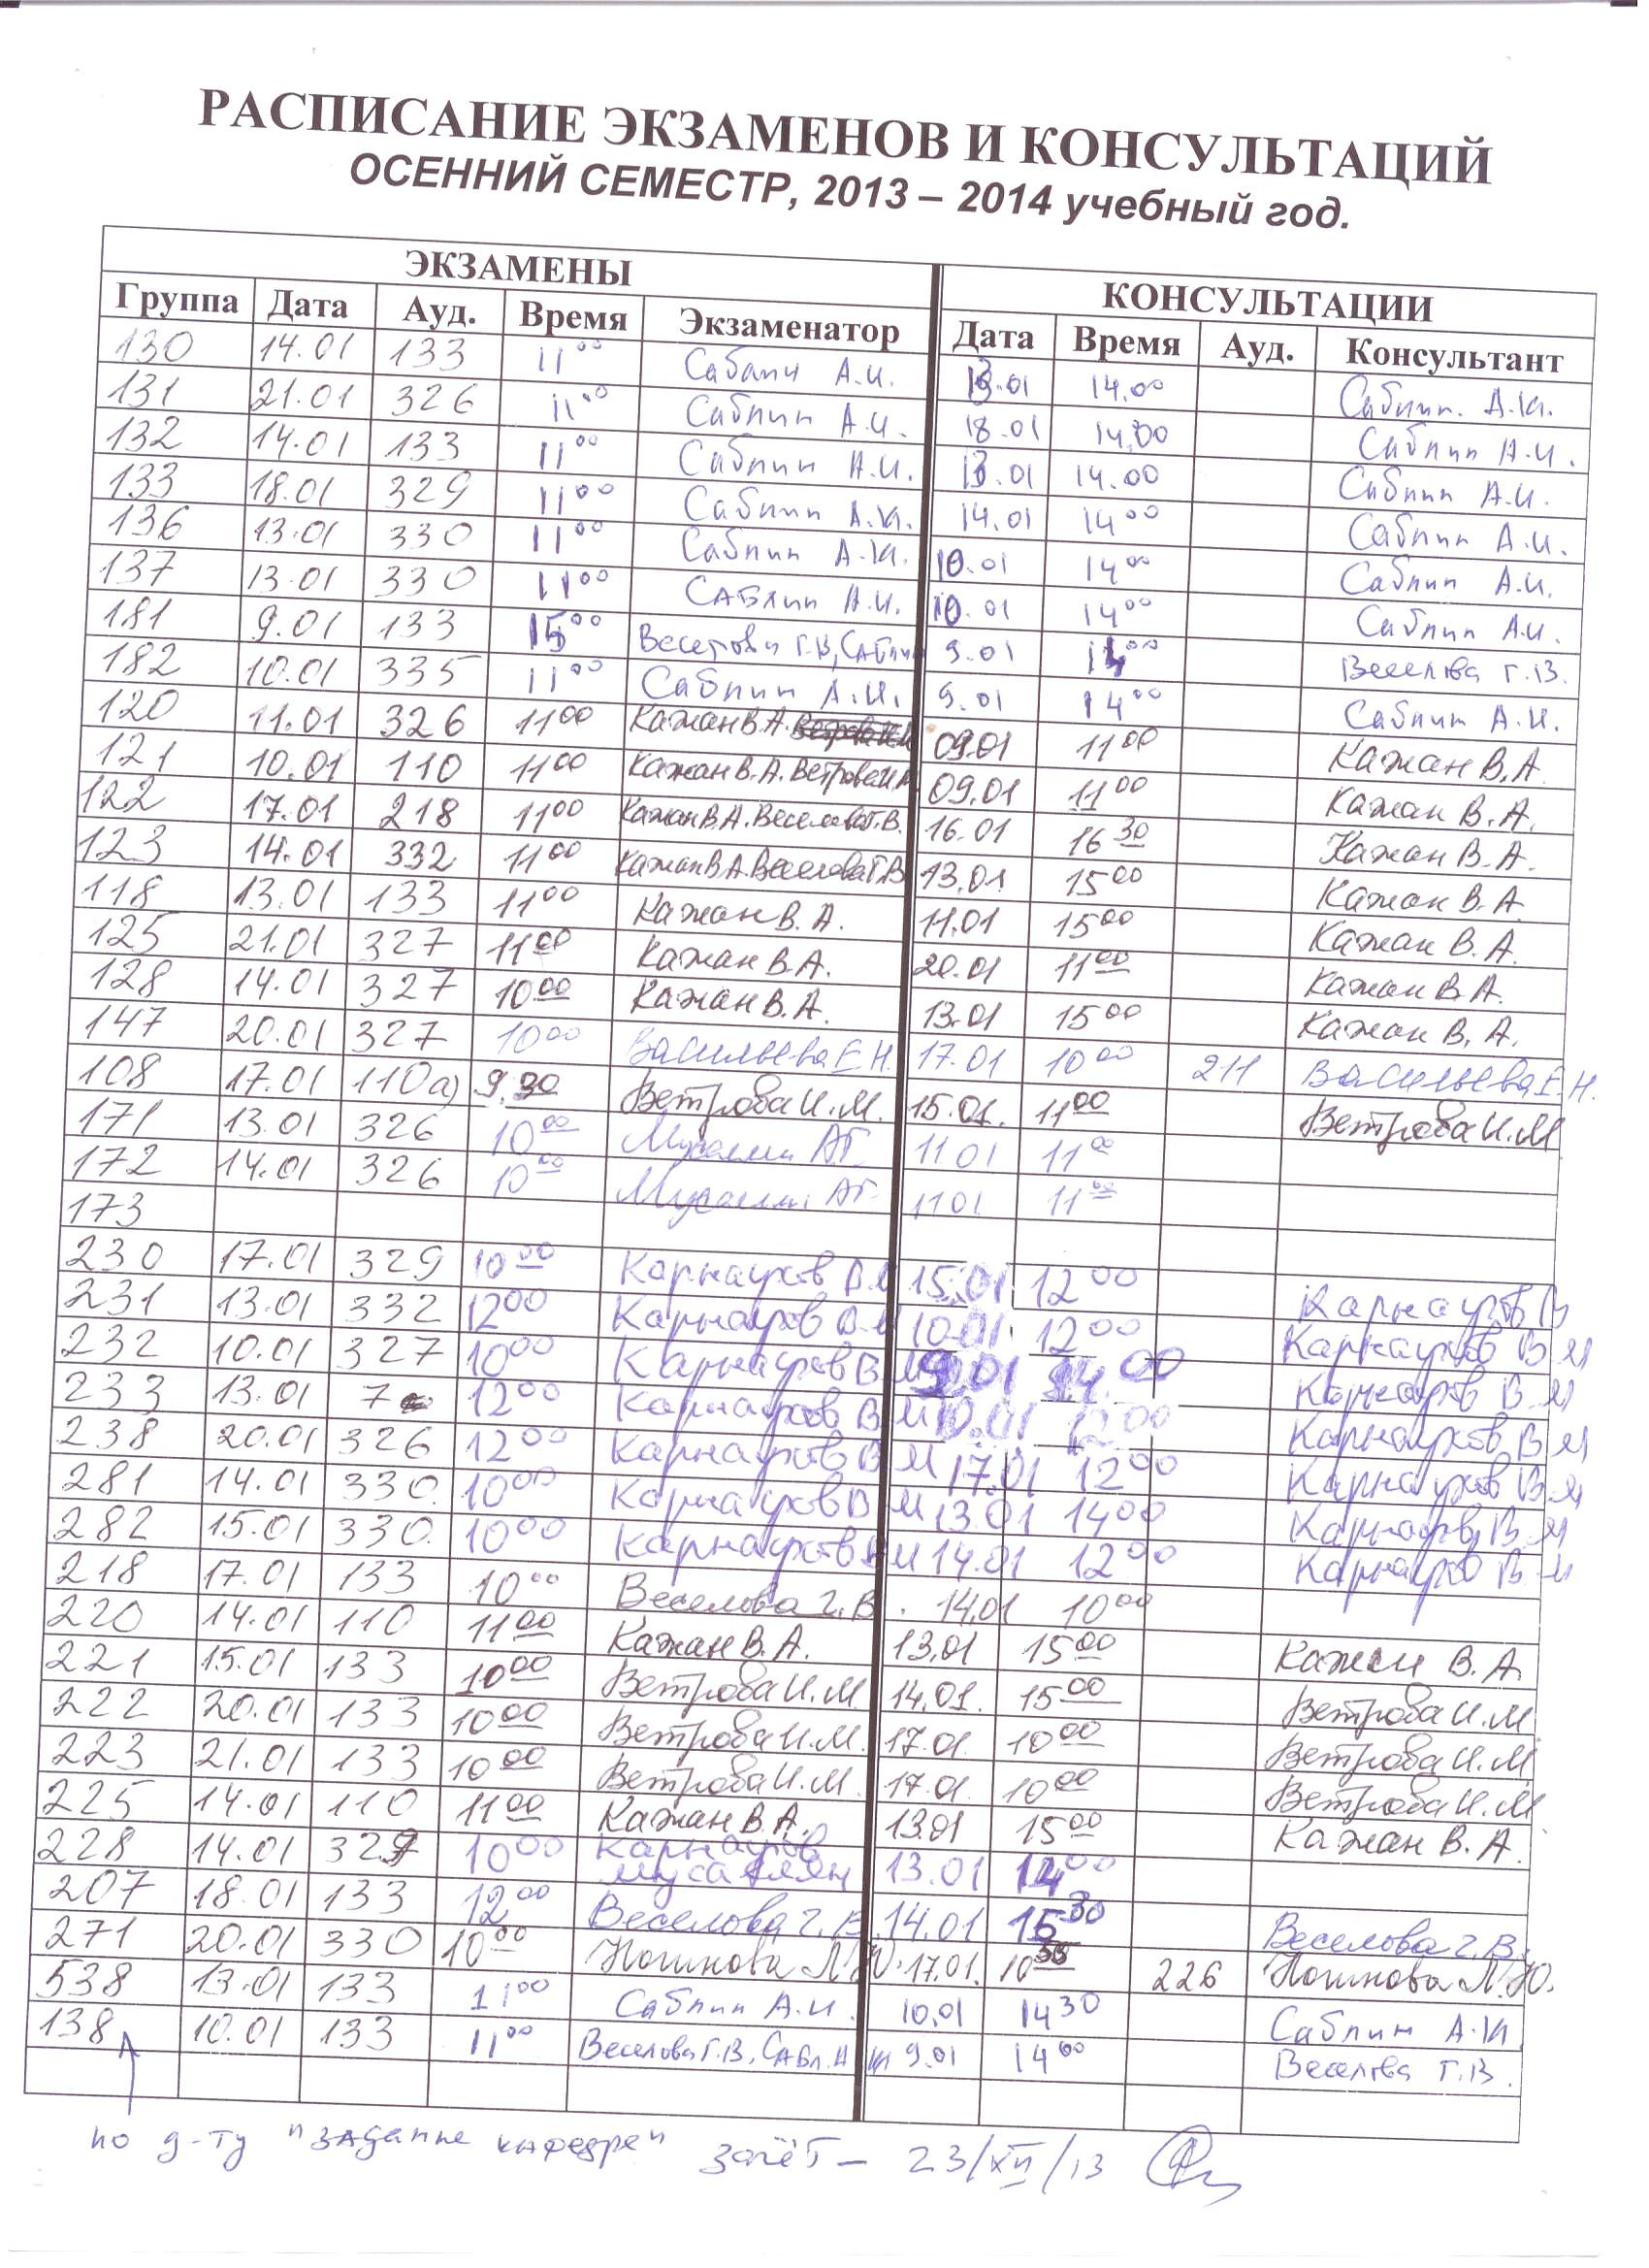 РАСПИСАНИЕ ЭКЗАМЕНОВ И КОНСУЛЬТАЦИЙ
ОСЕННИЙ СЕМЕСТР, 2013 – 2014 учебный год.
ЭКЗАМЕНЫ КОНСУЛЬТАЦИИ
Группа Дата Ауд. Время Экзаменатор Дата Время Ауд. Консультант
130 14.01 133 11⁰⁰ Саблин А.И. 13.01 14.00 Саблин А.И.
131 21.01 326 11⁰⁰ Саблин А.И. 18.01 14.00 Саблин А.И.
132 14.01 133 11⁰⁰ Саблин А.И. 13.01 14.00 Саблин А.И.
133 18.01 329 11⁰⁰ Саблин А.И. 14.01 14⁰⁰ Саблин А.И.
136 13.01 330 11⁰⁰ Саблин А.И. 10.01 14⁰⁰ Саблин А.И.
137 13.01 330 11⁰⁰ Саблин А.И. 10.01 14⁰⁰ Саблин А.И.
181 9.01 133 15⁰⁰ Веселова Г.В, Саблин 9.01 14⁰⁰ Веселова Г.В.
182 10.01 335 11⁰⁰ Саблин А.И. 9.01 14⁰⁰ Саблин А.И.
120 11.01 326 11⁰⁰ Кажан В.А. 09.01 11⁰⁰ Кажан В.А.
121 10.01 110 11⁰⁰ Кажан В.А. Ветрова И.М. 09.01 11⁰⁰ Кажан В.А.
122 17.01 218 11⁰⁰ Кажан В.А. Веселова Г.В. 16.01 16³⁰ Кажан В.А.
123 14.01 332 11⁰⁰ Кажан В.А. Веселова Г.В. 13.01 15⁰⁰ Кажан В.А.
118 13.01 133 11⁰⁰ Кажан В.А. 11.01 15⁰⁰ Кажан В.А.
125 21.01 327 11⁰⁰ Кажан В.А. 20.01 11⁰⁰ Кажан В.А.
128 14.01 327 10⁰⁰ Кажан В.А. 13.01 15⁰⁰ Кажан В.А.
147 20.01 327 10⁰⁰ Васильева Е.Н. 17.01 10⁰⁰ 211 Васильева Е.Н.
108 17.01 110а) 9.30 Ветрова И.М. 15.01. 11⁰⁰ Ветрова И.М
171 13.01 326 10⁰⁰ АГ. 11 01 11⁰⁰
172 14.01 326 10⁰⁰ АГ. 11 01. 11⁰⁰
173
230 17.01 329 10⁰⁰ Карнаухов В.М 15.01 12⁰⁰ Карнаухов В
231 13.01 332 12⁰⁰ Карнаухов В.М 10.01 12⁰⁰ Карнаухов В М
232 10.01 327 10⁰⁰ Карнаухов В М 9.01 14.00 Карнаухов В.М
233 13.01 7 12⁰⁰ Карнаухов В М 10.01 12⁰⁰ Карнаухов В М
238 20.01 326 12⁰⁰ Карнаухов В М 17.01 12⁰⁰ Карнаухов В.М
281 14.01 330. 10⁰⁰ Карнаухов В М 13.01 14⁰⁰ Карнаухов В.М
282 15.01 330. 10⁰⁰ Карнаухов В М 14.01 12⁰⁰ Карнаухов В.М
218 17.01 133 10⁰⁰ Веселова Г.В. 14.01 10⁰⁰
220 14.01 110 11⁰⁰ Кажан В.А. 13.01 15⁰⁰ Кажан В.А.
221 15.01 133 10⁰⁰ Ветрова И.М 14.01. 15⁰⁰ Ветрова И.М
222 20.01 133 10⁰⁰ Ветрова И.М. 17.01. 10⁰⁰ Ветрова И.М
223 21.01 133 10⁰⁰ Ветрова И.М. 17.01. 10⁰⁰ Ветрова И.М
225 14.01 110 11⁰⁰ Кажан В.А. 13.01 15⁰⁰ Кажан В.А.
228 14.01 10⁰⁰ Карнаухов Мусаелян 13.01 14⁰⁰
207 18.01 133 12⁰⁰ Веселова Г.В. 14.01 15³⁰ Веселова Г.В.
271 20.01 330 10⁰⁰ Л.Ю. 17.01. 226 Л.Ю.
538 13.01 133 11⁰⁰ Саблин А.И. 10.01 14 30 Саблин А.И
138 10.01 133 11⁰⁰ Веселова Г.В, Сабл. А И 9.01 14⁰⁰ Веселова Г.В.
по д-ту "задание кафедре" зачёт – 23/XII/13